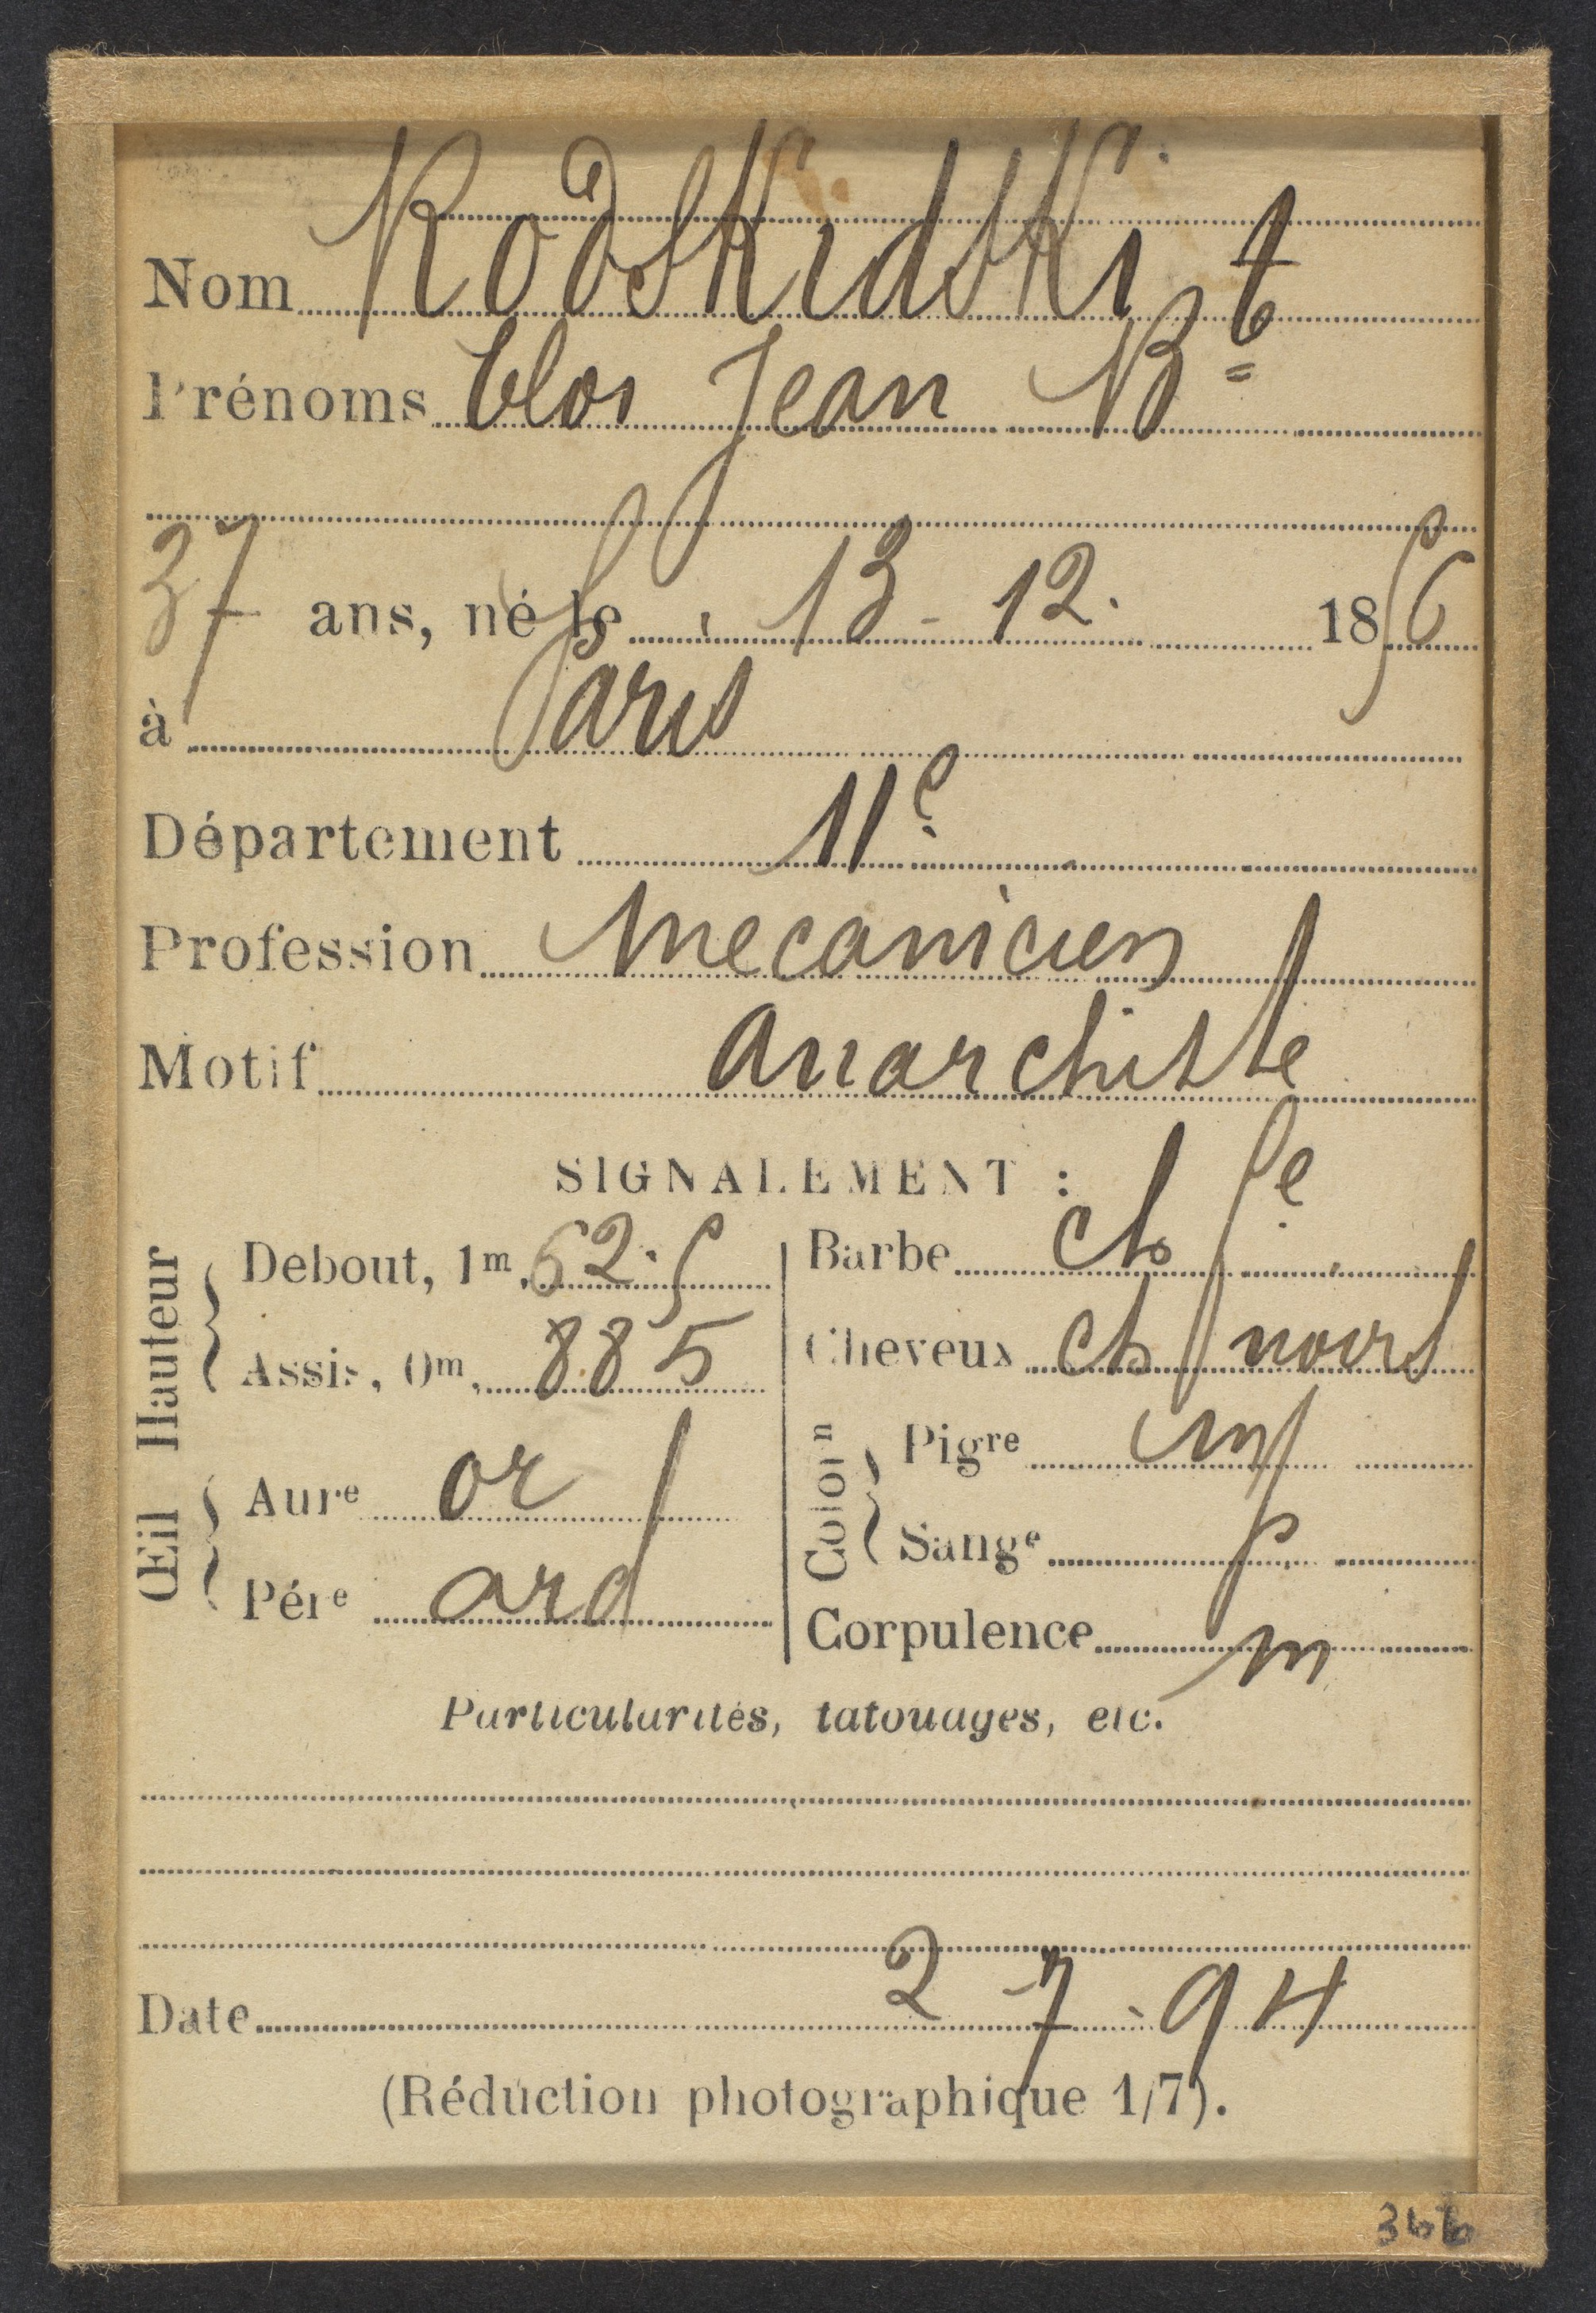 Nom Rodskidski
Prénoms Clos Jean Bt
37 ans, né le 13-12. 1856
à Paris
Département 11e
Profession mecanicien
Motif anarchiste
SIGNALEMENT :
Hauteur
Debout, 1m, 62.5
Assis, 0m, 885
Œil
Aure or
Pére ard
Barbe ch fe
Cheveux ch noirs
Colorn
Pigre
Sange p
Corpulence m
Particularités, tatouages, etc.
Date 2-7-94
(Réduction photographique 1/7).
366